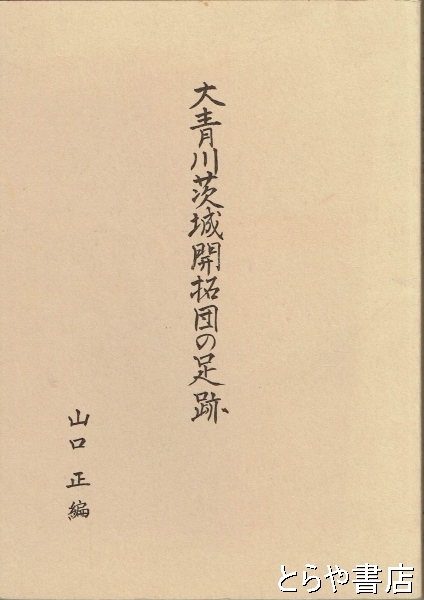 大青川茨城開拓団の足跡
山口 正 編
とらや書店